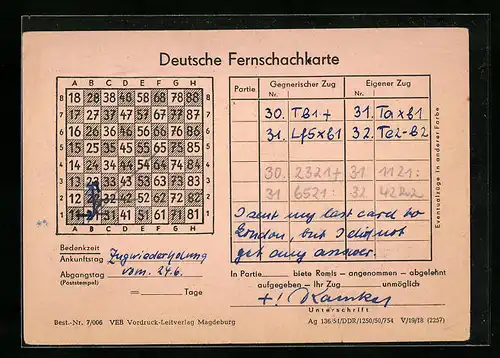 Deutsche Fernschachkarte
A B C D E F G H
8 18 28 38 48 58 68 78 88 8
7 17 27 37 47 57 67 77 87 7
6 16 26 36 46 56 66 76 86 6
5 15 25 35 45 55 65 75 85 5
4 14 24 34 44 54 64 74 84 4
3 13 23 33 43 53 63 73 83 3
2 12 32 42 52 62 72 82 2
1 11 31 41 51 61 71 81 1
A B C D E F G H
Bedenkzeit
Ankunftstag Zugwiederholung
Abgangstag vom 24.6.
(Poststempel)
= Tage
Partie Gegnerischer Zug Eigener Zug
Nr. Nr.
30. Tb1+ 31. Taxb1
31. Lf5xb1 32. Te2-b2
30. 2321+ 31. 1121:
31 6521: 32 4222
Eventualzüge in anderer Farbe
I sent my last card to
London, but I did not
get any answer.
In Partie biete Remis – angenommen – abgelehnt
aufgegeben – Ihr Zug unmöglich
+!
Unterschrift
Best.-Nr. 7/006 VEB Vordruck-Leitverlag Magdeburg
Ag 136/51/DDR/1250/50/754 V/19/18 (2257)